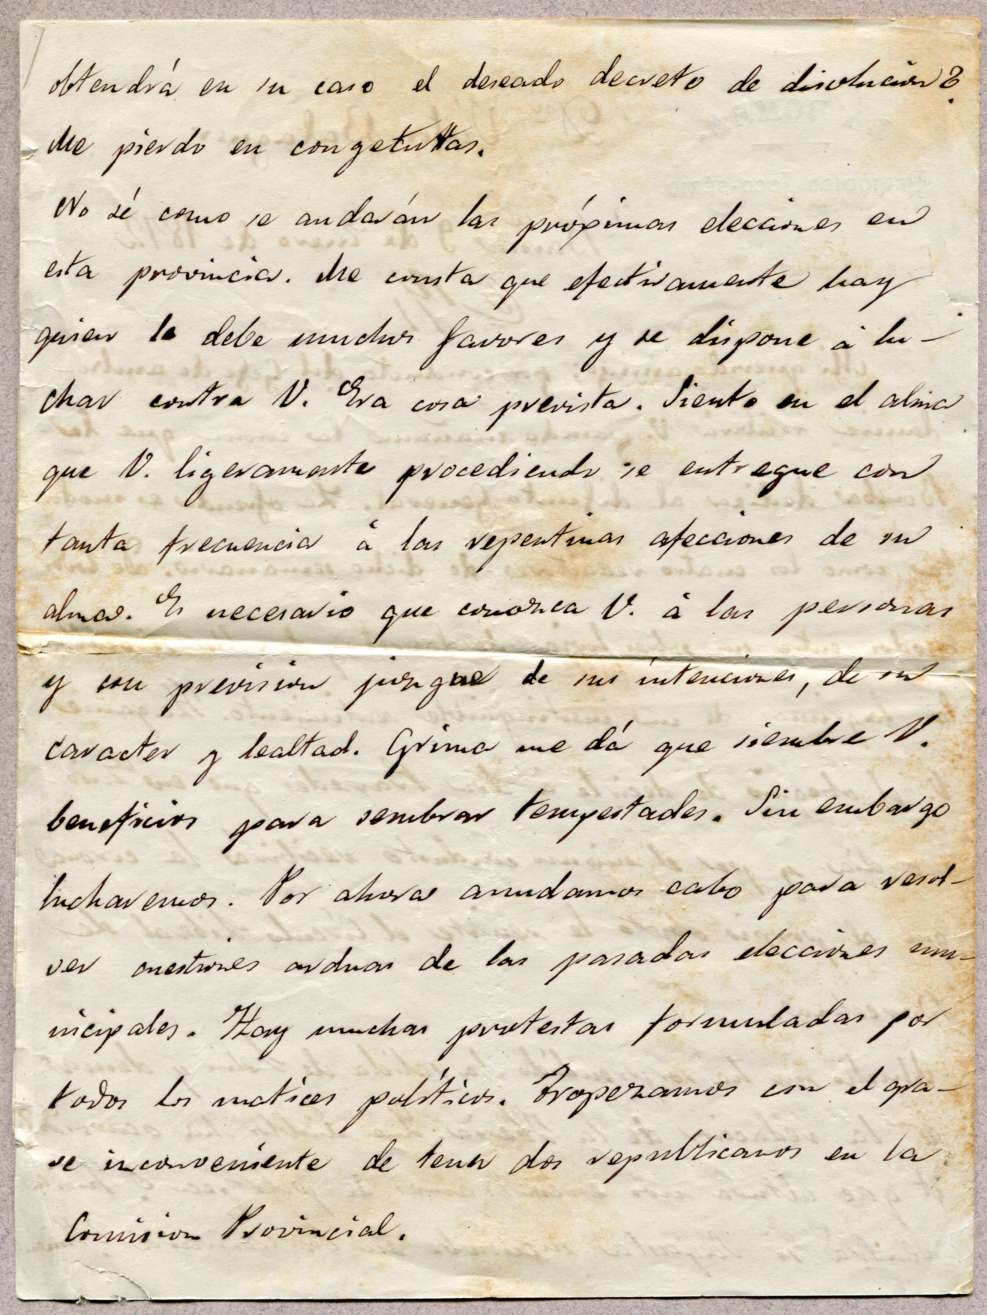 obtendrá en su caso el deseado decreto de disolucion?
Me pierdo en congeturas.
No sé como se andarán las próximas elecciones en
esta provincia. Me consta que efectivamente hay
quien le debe muchos favores y se dispone á lu-
char contra V. Era cosa prevista. Siento en el alma
que V. ligeramente procediendo se entregue con
tanta frecuencia á las repentinas afecciones de su
alma. Es necesario que conozca V. á las personas
y con prevision juzgue de sus intenciones, de su
caracter y lealtad. Grima me dá que siembre V.
beneficios para sembrar tempestades. Sin embargo
lucharemos. Por ahora anudamos cabo para resol-
ver cuestiones arduas de las pasadas elecciones mu-
nicipales. Hay muchas protestas formuladas por
todos los matices políticos. Tropezamos con el gra-
ve inconveniente de tener dos republicanos en la
Comision Provincial.